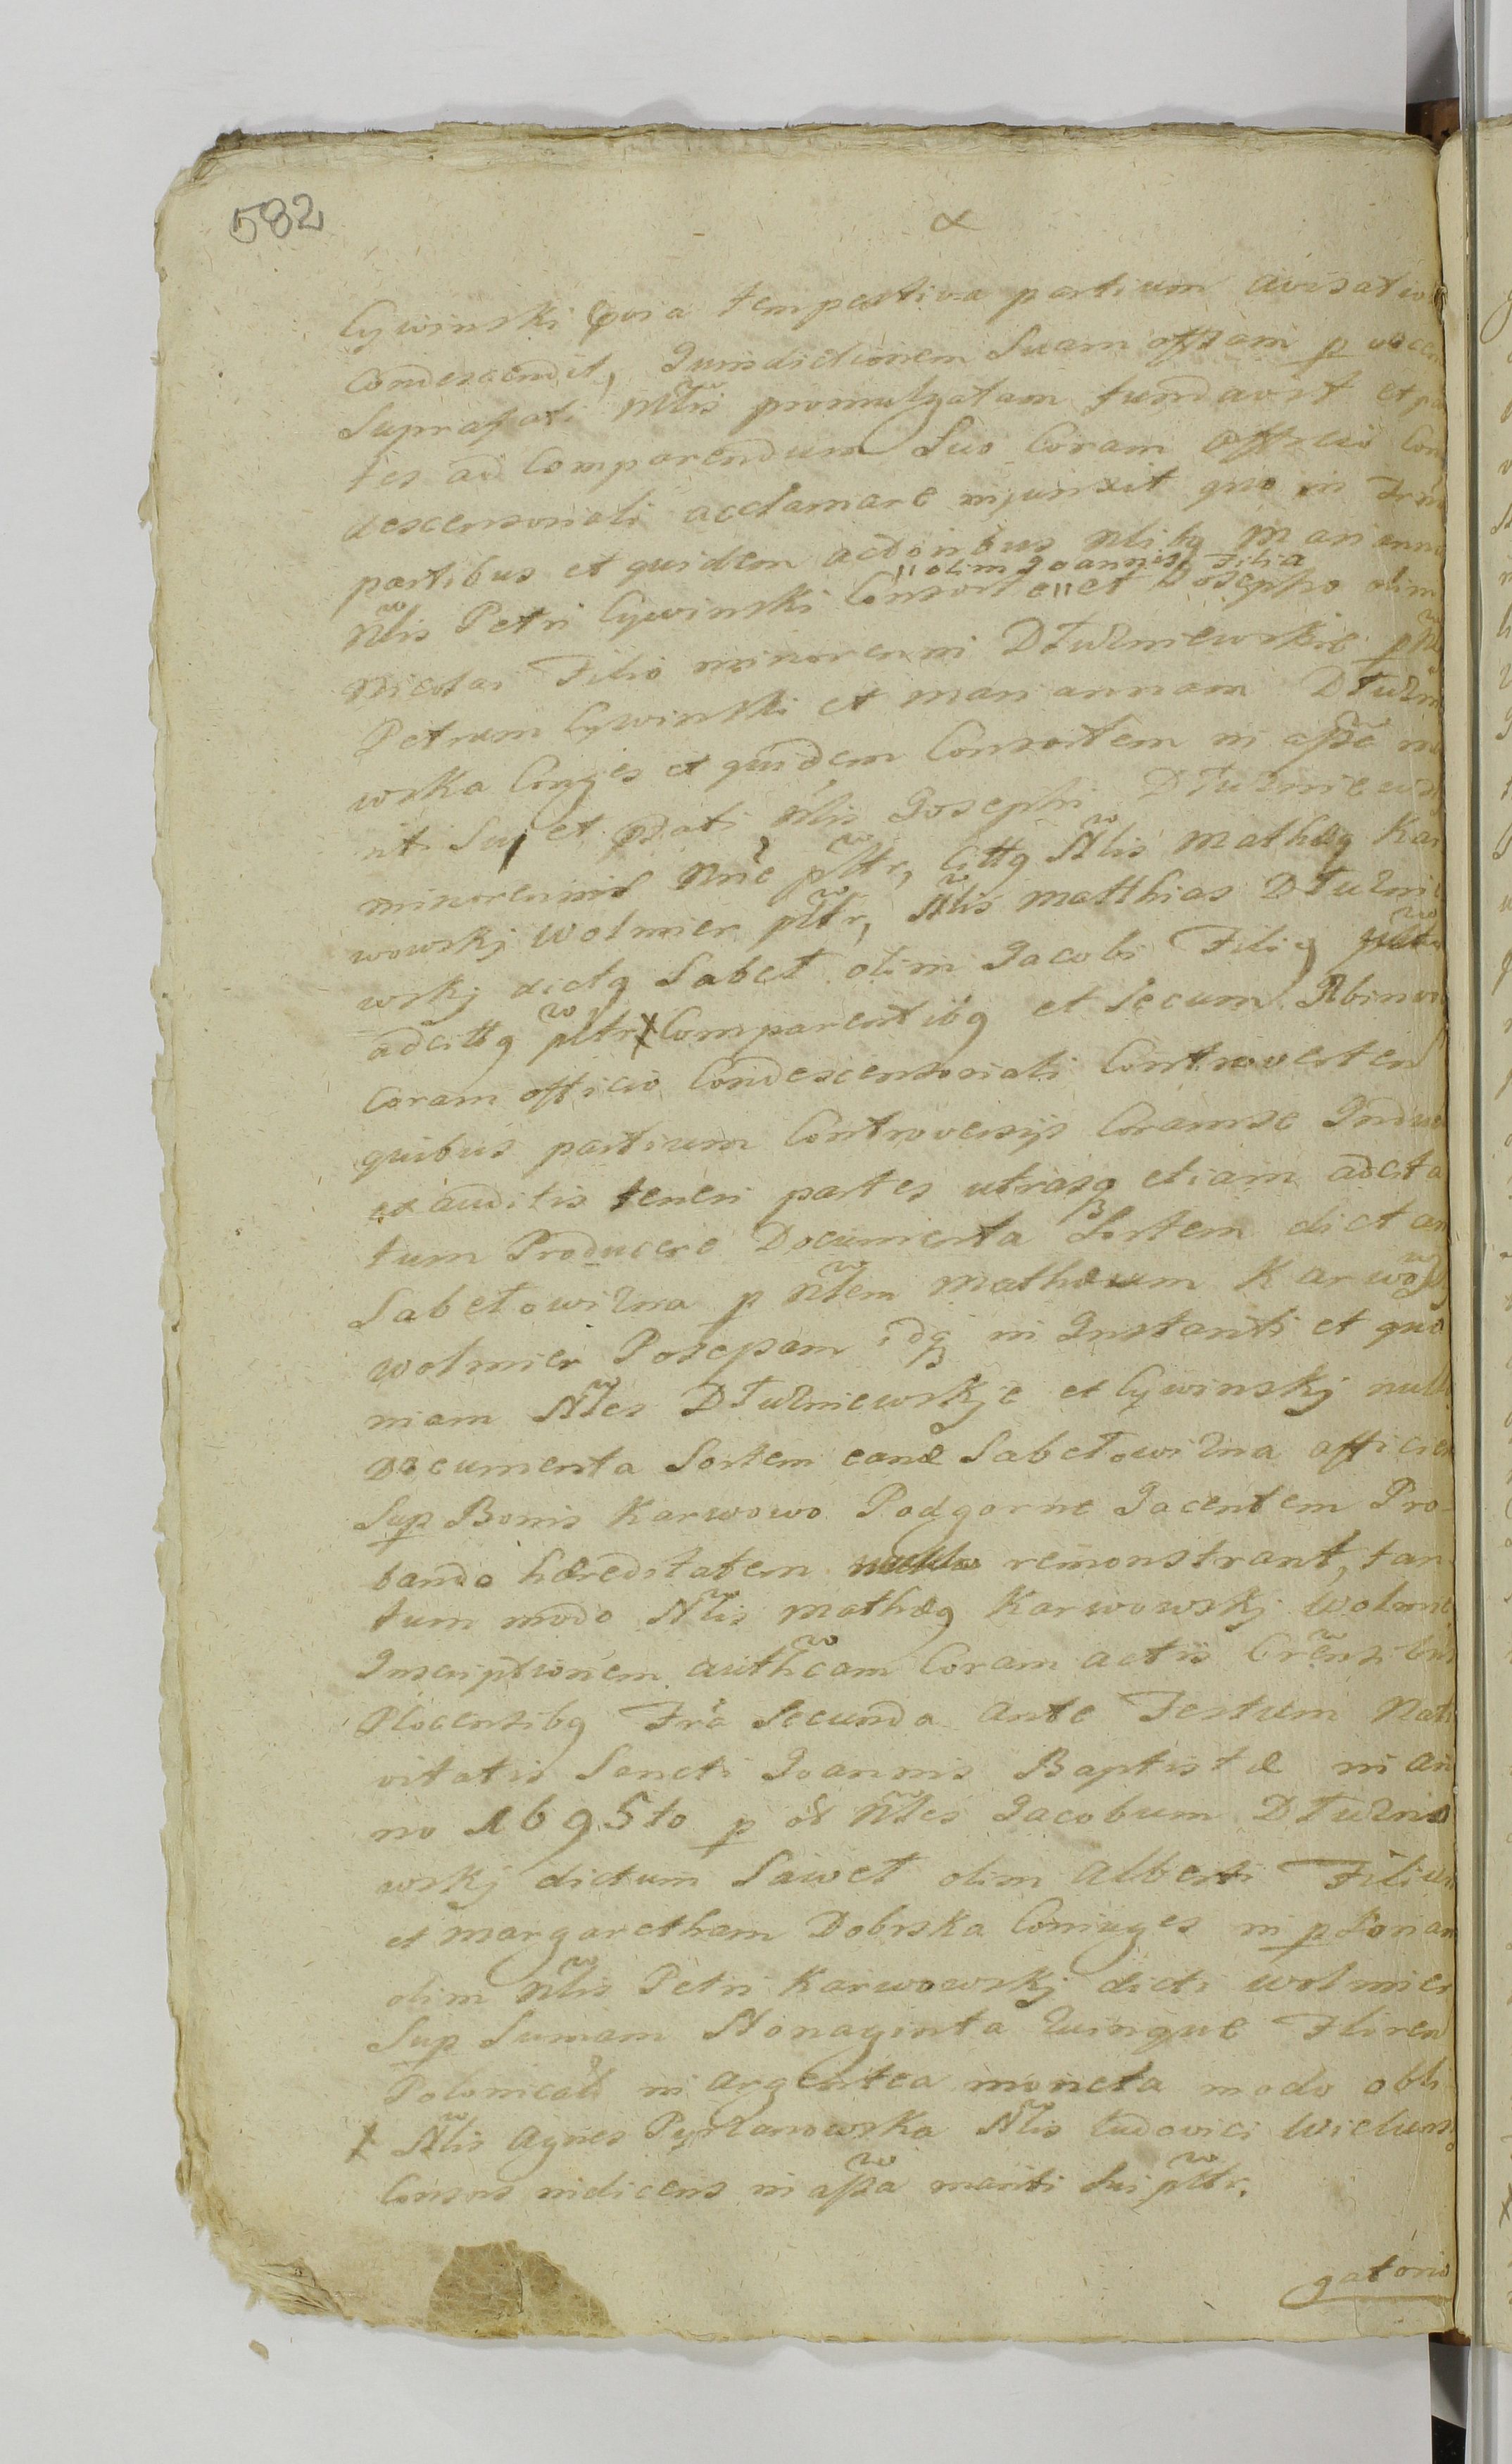 582
Cywinski Qvia tempestiva partium avisatio
condescendit, Jurisdictionem Suam offlam p vocem
Suprafati Mtlis promulgatam fundavit et par
tes ad Comparendum Suo Coram Officio Con
descensoriali acclamare injunxit quo in Trno
partibus et quidem actoribus Nlibq Marianna
"olim Joannis Filia
Nlis Petri Cywinski Consorte " et Josepho olim
Nicolai Filio minorenni Dłużniewskie p Nlem
Petrum Cywinski et Mariannam Dłużnie
wska Conges et quidem Consortem in assa ma
riti Sui et pdati Nlis Josephi Dłużniewski
minorennis Nne psltr, Cittq Nlis Mathæq Kar
wowskj Wolmier psltr, Nlis Matthias Dłużnie
wskj dictq Sabeł olim Jacobi Filiq
adcittq psltr X Comparentibq et Secum Jbinvic
Coram officio Condescensoriali Controverten
quibus partium Controversijs Coramse Induct
exauditis teneri partes utrasq etiam adcita
tum Producere Documenta Sortem dictam
Sabełowizna p Nlem Mathæum Karwowskj
Wolmier Possessam idq in Instanti et quo
niam Nles Dłużniewskje et Cywinskj nulla
Documenta Sortem eand Sabełowizna officien
Sup Bonis Karwowo Podgorne Jacentem Pro
bando hæreditatem remonstrant, tan
tum modo Nlis Mathæq Karwowskj Wolmie
Inscriptionem authcam Coram actis Crensibus
Plocensibq Fra Secunda ante Festum Nati
vitatis Sancti Joannis Baptistæ in an
no 1695to p ol Nles Jacobum Dłużnie
wskj dictum Saweł olim Alberti Filium
et Margaretham Dobrska Coniuges in psonam
olim Nlis Petri Karwowskj dicti Wolmier
Sup Sumam Nonaginta Quinque Floren
Polonical in argentea moneta modo obli
X Nlis Agnes Pyrzanowska Nlis Ludovici Wieluns
Consors indicens in assa mariti Sui psltr.
gatorio